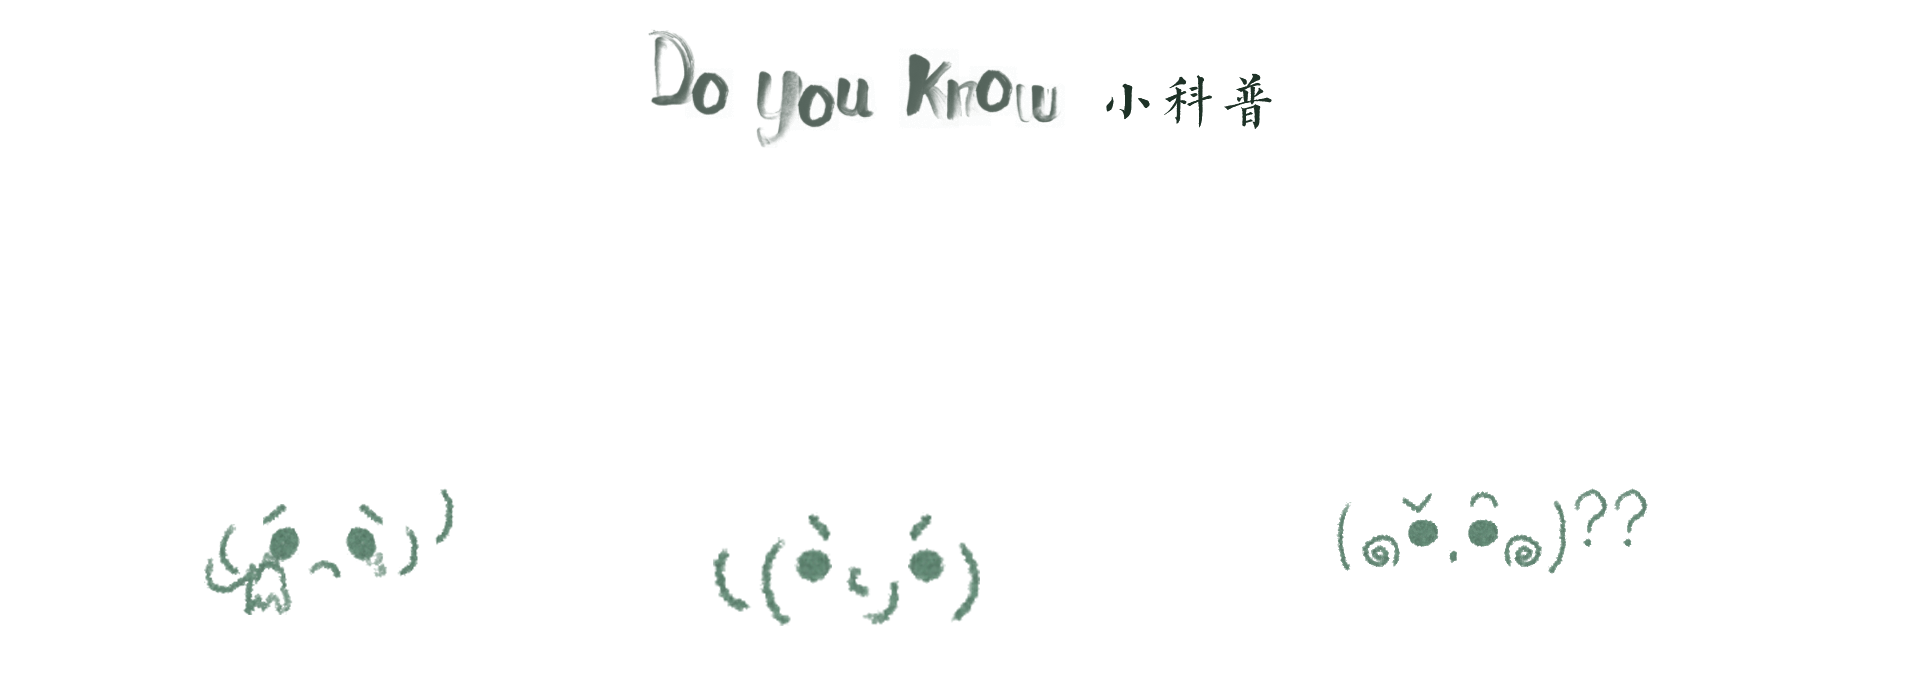 Do you Know 小科普
??